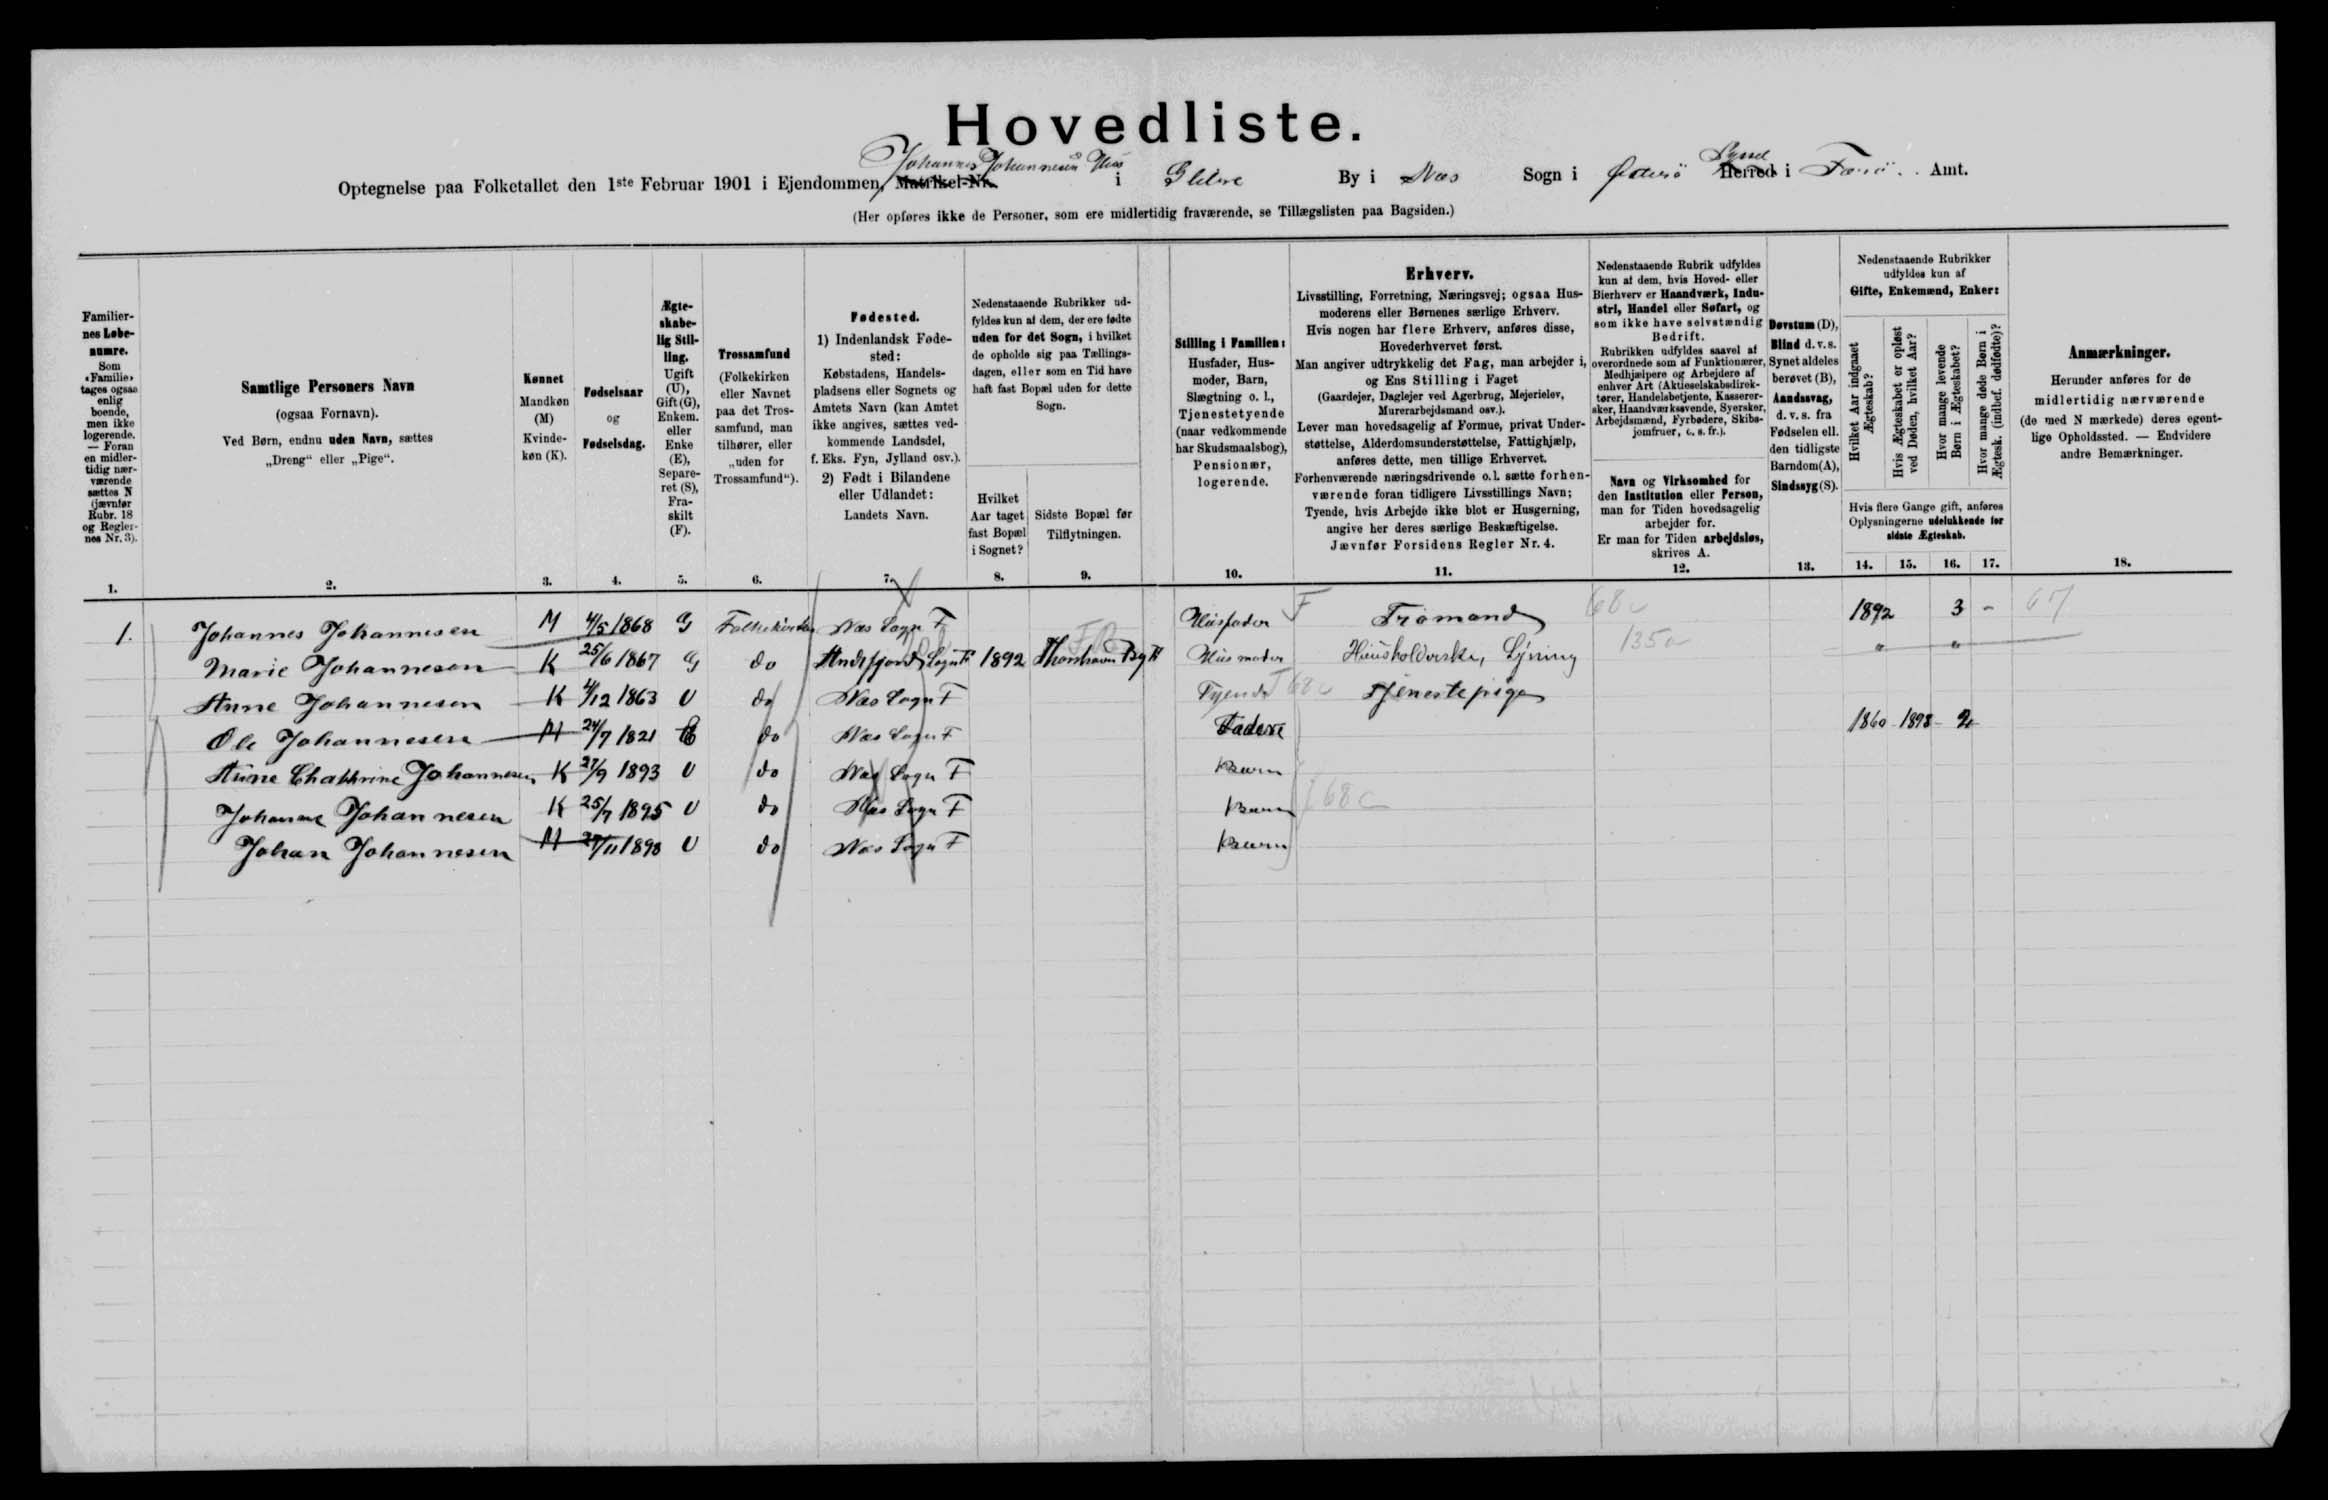 Hovedliste.
Johannes Johannesens Hus Syssel
Optegnelse paa Folketallet den 1ste Februar 1901 i Ejendommen, Matrikel-Nr. i By i Næs Sogn i Østerö Herred i Færö Amt.
(Her opføres ikke de Personer, som ere midlertidig fraværende, se Tillægslisten paa Bagsiden.)
Familier-
nes Løbe-
numre.
Som
«Familie»
tages ogsaa
enlig
boende,
men ikke
logerende.
— Foran
en midler-
tidig nær-
værende
sættes N
(jævnfør
Rubr. 18
og Regler-
nes Nr. 3).
1.
Samtlige Personers Navn
(ogsaa Fornavn).
Ved Børn, endnu uden Navn, sættes
„Dreng“ eller „Pige“.
2.
Kønnet
Mandkøn
(M)
Kvinde-
køn (K).
3.
Fødselsaar
og
Fødselsdag.
4.
Ægte-
skabe-
lig Stil-
ling.
Ugift
(U),
Gift (G),
Enkem.
eller
Enke
(E),
Separe-
ret (S),
Fra-
skilt
(F).
5.
Trossamfund
(Folkekirken
eller Navnet
paa det Tros-
samfund, man
tilhører, eller
„uden for
Trossamfund“).
6.
Fødested.
1) Indenlandsk Føde-
sted:
Købstadens, Handels-
pladsens eller Sognets og
Amtets Navn (kan Amtet
ikke angives, sættes ved-
kommende Landsdel,
f. Eks. Fyn, Jylland osv.).
2) Født i Bilandene
eller Udlandet:
Landets Navn.
7.
Nedenstaaende Rubrikker ud-
fyldes kun af dem, der ere fødte
uden for det Sogn, i hvilket
de opholde sig paa Tællings-
dagen, eller som en Tid have
haft fast Bopæl uden for dette
Sogn.
Hvilket
Aar taget
fast Bopæl
i Sognet?
8.
Sidste Bopæl før
Tilflytningen.
9.
Stilling i Familien:
Husfader, Hus-
moder, Barn,
Slægtning o. l.,
Tjenestetyende
(naar vedkommende
har Skudsmaalsbog),
Pensionær,
logerende.
10.
Erhverv.
Livsstilling, Forretning, Næringsvej; ogsaa Hus-
moderens eller Børnenes særlige Erhverv.
Hvis nogen har flere Erhverv, anføres disse,
Hovederhvervet først.
Man angiver udtrykkelig det Fag, man arbejder i,
og Ens Stilling i Faget
(Gaardejer, Daglejer ved Agerbrug, Mejerielev,
Murerarbejdsmand osv.).
Lever man hovedsagelig af Formue, privat Under-
støttelse, Alderdomsunderstøttelse, Fattighjælp,
anføres dette, men tillige Erhvervet.
Forhenværende næringsdrivende o. l. sætte forhen-
værende foran tidligere Livsstillings Navn;
Tyende, hvis Arbejde ikke blot er Husgerning,
angive her deres særlige Beskæftigelse.
Jævnfør Forsidens Regler Nr. 4.
11.
Nedenstaaende Rubrik udfyldes
kun af dem, hvis Hoved- eller
Bierhverv er Haandværk, Indu-
stri, Handel eller Søfart, og
som ikke have selvstændig
Bedrift.
Rubrikken udfyldes saavel af
overordnede som af Funktionærer,
Medhjælpere og Arbejdere af
enhver Art (Aktieselskabsdirek-
tører, Handelsbetjente, Kasserer-
sker, Haandværkssvende, Syersker,
Arbejdsmænd, Fyrbødere, Skibs-
jomfruer, o. s. fr.).
Navn og Virksomhed for
den Institution eller Person,
man for Tiden hovedsagelig
arbejder for.
Er man for Tiden arbejdsløs,
skrives A.
12.
Døvstum (D),
Blind d. v. s.
Synet aldeles
berøvet (B),
Aandssvag,
d. v. s. fra
Fødselen ell.
den tidligste
Barndom (A),
Sindssyg (S).
13.
Nedenstaaende Rubrikker
udfyldes kun af
Gifte, Enkemænd, Enker:
Hvilket Aar indgaaet
Ægteskab?
Hvis Ægteskabet er opløst
ved Døden, hvilket Aar?
Hvor mange levende
Børn i Ægteskabet?
Hvor mange døde Børn i
Ægtesk. (indbef. dødfødte)?
Hvis flere Gange gift, anføres
Oplysningerne udelukkende for
sidste Ægteskab.
14. 15. 16. 17.
Anmærkninger.
Herunder anføres for de
midlertidig nærværende
(de med N mærkede) deres egent-
lige Opholdssted. — Endvidere
andre Bemærkninger.
18.
1. Johannes Johannesen M 4/5 1868 G Folkekirken Næs Sogn F Husfader F 68 c 1892 3 - 67
Marie Johannesen K 25/6 1867 G do Sogn F 1892 Thorshavn By F Husmoder Husholderske, 135 a " "
Anne Johannesen K 4/12 1863 U do Næs Sogn F Tyende T 68 c Tjenestepige
Ole Johannesen M 24/7 1821 E do Næs Sogn F Fader 1860 1898 2
Anne Chathrine Johannesen K 27/9 1893 U do Næs Sogn F Barn
Johanne Johannesen K 25/7 1895 U do Næs Sogn F Barn F 68 c
Johan Johannesen M 27/11 1898 U do Næs Sogn F Barn